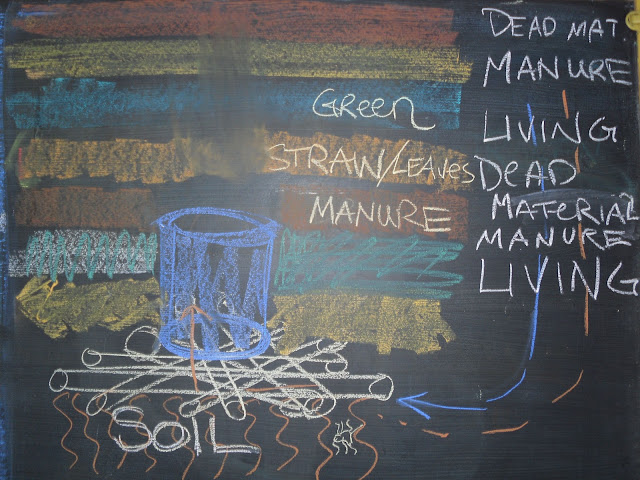 DEAD MAT.
MANURE
Green
LIVING
STRAW/LEAVES
DEAD
MANURE
MATERIAL
MANURE
LIVING
SOIL